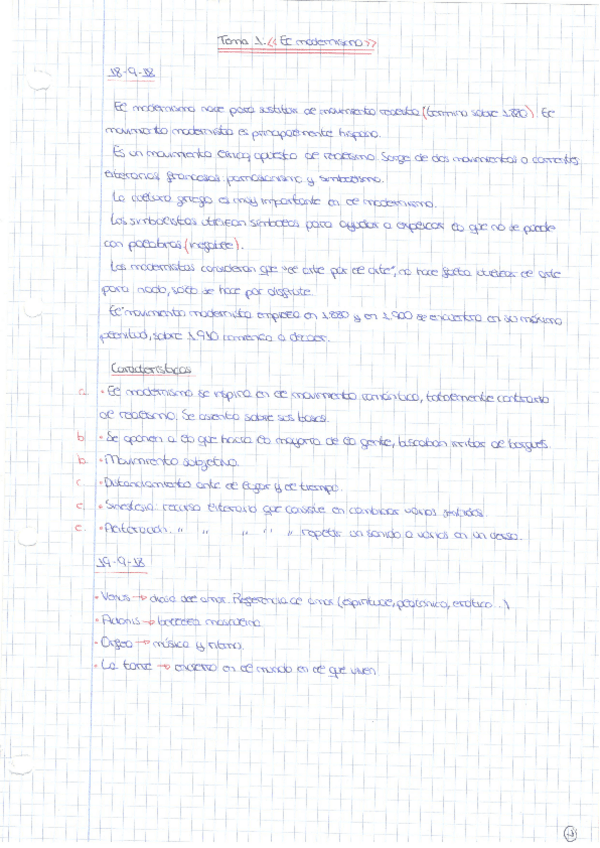 Tema 1. << El modernismo >>
18-9-18
El modernismo nace para sustituir al movimiento realista (termino sobre 1880). El
movimiento modernista es principalmente hispano.
Es un movimiento lírico, opuesto al realismo. Surge de dos movimientos o corrientes
literarias francesas, parnasianismo y simbolismo.
La cultura griega es muy importante en el modernismo.
Los simbolistas utilizan símbolos para ayudar a explicar lo que no se puede
con palabras (inefable).
Los modernistas consideran que "el arte por el arte", no hace falta utilizar el arte
para nada, solo se hace por disfrute.
El movimiento modernista empieza en 1880 y en 1900 se encuentra en su máxima
plenitud, sobre 1910 comienza a decaer.
Características
a. · El modernismo se inspira en el movimiento romántico, totalmente contrario
al realismo. Se asienta sobre sus bases.
b. · Se oponen a lo que hacía la mayoría de la gente, buscaban irritar al burgués.
b. · Movimiento subjetivo.
c. · Distanciamiento ante el lugar y el tiempo.
c. · Sinestesia: recurso literario que consiste en cambiar varios sentidos.
c. · Aliteración: " " " " " repetir un sonido o varios en un verso.
19-9-18
· Venus → diosa del amor. Referencia al amor (espiritual, platónico, erótico...)
· Adonis → belleza masculina
· Orfeo → música y ritmo.
· La torre → encierro en el mundo en el que viven